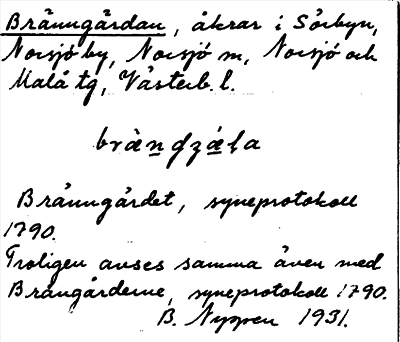 Bränngårdan, åkrar i Sörbyn,
Norsjö by, Norsjö sn, Norsjö och
Malå tg, Västerb. l.
Bränngårdet, syneprotokoll
1790.
Troligen avses samma även med
Brängårderne, syneprotokoll 1790.
B. Nyppen 1931.